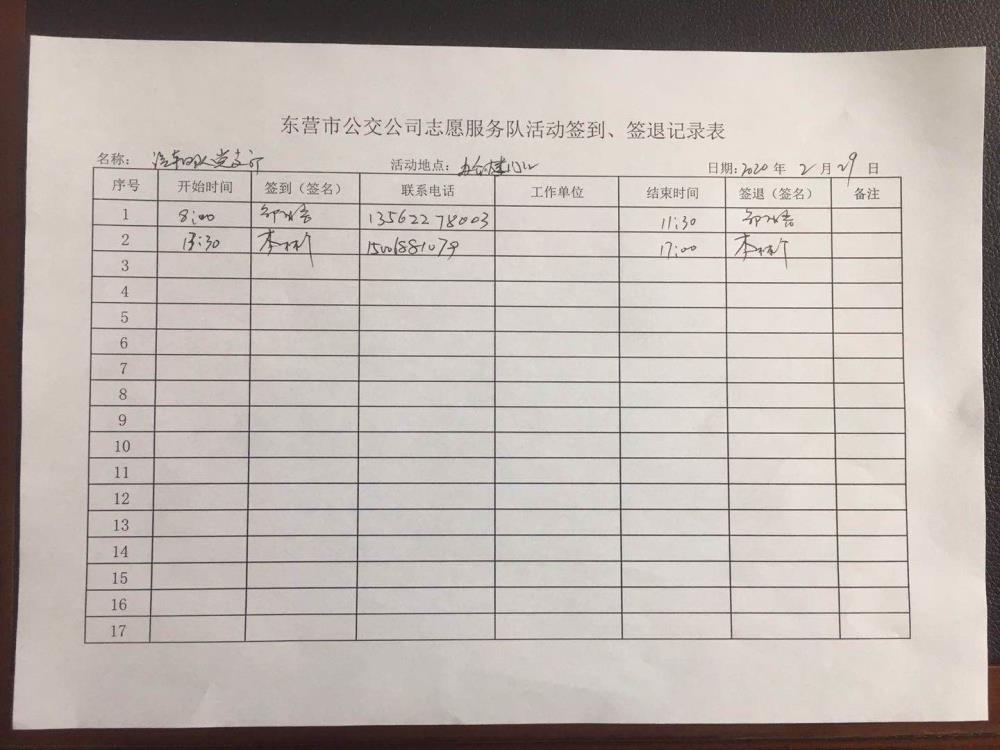 东营市公交公司志愿服务队活动签到、签退记录表
名称: 汽车队党支部 活动地点: 办公楼门口 日期: 2020 年 2 月 29 日
序号 开始时间 签到（签名） 联系电话 工作单位 结束时间 签退（签名） 备注
1 8:00 13562278003 11:30
2 13:30 17:00
3
4
5
6
7
8
9
10
11
12
13
14
15
16
17